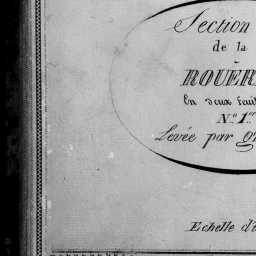 Section
de la
ROUER
En deux feuil
N.º 1.er
Levée par
Echelle d'